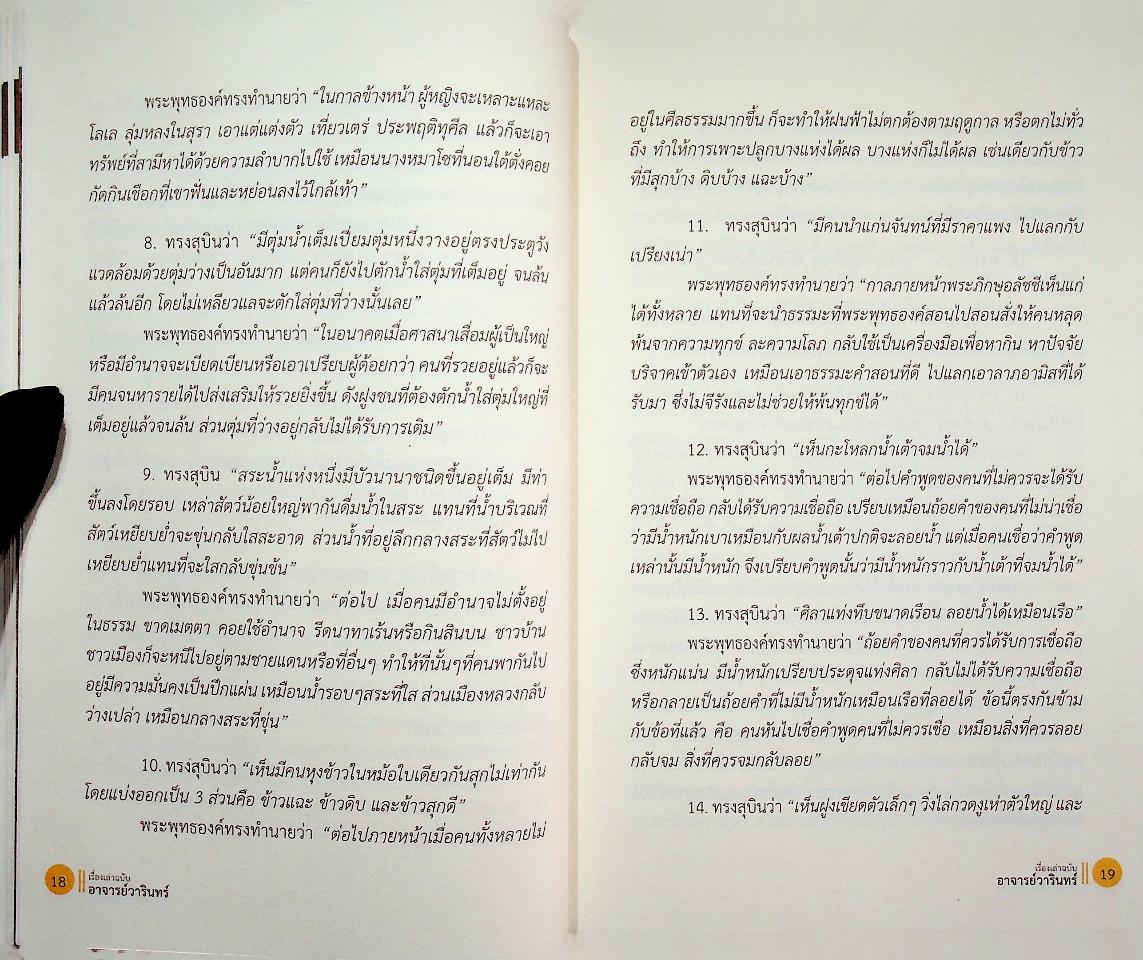 พระพุทธองค์ทรงทำนายว่า “ในกาลข้างหน้า ผู้หญิงจะเหลาะแหละ
โลเล ลุ่มหลงในสุรา เอาแต่แต่งตัว เที่ยวเตร่ ประพฤติทุศีล แล้วก็จะเอา
ทรัพย์ที่สามีหาได้ด้วยความลำบากไปใช้ เหมือนนางหมาโซที่นอนใต้ตั่งคอย
กัดกินเชือกที่เขาฟั่นและหย่อนลงไว้ใกล้เท้า”
8. ทรงสุบินว่า “มีตุ่มน้ำเต็มเปี่ยมตุ่มหนึ่งวางอยู่ตรงประตูวัง
แวดล้อมด้วยตุ่มว่างเป็นอันมาก แต่คนก็ยังไปตักน้ำใส่ตุ่มที่เต็มอยู่ จนล้น
แล้วล้นอีก โดยไม่เหลียวแลจะตักใส่ตุ่มที่ว่างนั้นเลย”
พระพุทธองค์ทรงทำนายว่า “ในอนาคตเมื่อศาสนาเสื่อมผู้เป็นใหญ่
หรือมีอำนาจจะเบียดเบียนหรือเอาเปรียบผู้ด้อยกว่า คนที่รวยอยู่แล้วก็จะ
มีคนจนหารายได้ไปส่งเสริมให้รวยยิ่งขึ้น ดังฝูงชนที่ต้องตักน้ำใส่ตุ่มใหญ่ที่
เต็มอยู่แล้วจนล้น ส่วนตุ่มที่ว่างอยู่กลับไม่ได้รับการเติม”
9. ทรงสุบิน “สระน้ำแห่งหนึ่งมีบัวนานาชนิดขึ้นอยู่เต็ม มีท่า
ขึ้นลงโดยรอบ เหล่าสัตว์น้อยใหญ่พากันดื่มน้ำในสระ แทนที่น้ำบริเวณที่
สัตว์เหยียบย่ำจะขุ่นกลับใสสะอาด ส่วนน้ำที่อยู่ลึกกลางสระที่สัตว์ไม่ไป
เหยียบย่ำแทนที่จะใสกลับขุ่นข้น”
พระพุทธองค์ทรงทำนายว่า “ต่อไป เมื่อคนมีอำนาจไม่ตั้งอยู่
ในธรรม ขาดเมตตา คอยใช้อำนาจ รีดนาทาเร้นหรือกินสินบน ชาวบ้าน
ชาวเมืองก็จะหนีไปอยู่ตามชายแดนหรือที่อื่นๆ ทำให้ที่นั้นๆที่คนพากันไป
อยู่มีความมั่นคงเป็นปึกแผ่น เหมือนน้ำรอบๆสระที่ใส ส่วนเมืองหลวงกลับ
ว่างเปล่า เหมือนกลางสระที่ขุ่น”
10. ทรงสุบินว่า “เห็นมีคนหุงข้าวในหม้อใบเดียวกันสุกไม่เท่ากัน
โดยแบ่งออกเป็น 3 ส่วนคือ ข้าวแฉะ ข้าวดิบ และข้าวสุกดี”
พระพุทธองค์ทรงทำนายว่า “ต่อไปภายหน้าเมื่อคนทั้งหลายไม่
18
เรื่องเล่าฉบับ
อาจารย์วารินทร์
อยู่ในศีลธรรมมากขึ้น ก็จะทำให้ฝนฟ้าไม่ตกต้องตามฤดูกาล หรือตกไม่ทั่ว
ถึง ทำให้การเพาะปลูกบางแห่งได้ผล บางแห่งก็ไม่ได้ผล เช่นเดียวกับข้าว
ที่มีสุกบ้าง ดิบบ้าง แฉะบ้าง”
11. ทรงสุบินว่า “มีคนนำแก่นจันทน์ที่มีราคาแพง ไปแลกกับ
เปรียงเน่า”
พระพุทธองค์ทรงทำนายว่า “กาลภายหน้าพระภิกษุอลัชชีเห็นแก่
ได้ทั้งหลาย แทนที่จะนำธรรมะที่พระพุทธองค์สอนไปสอนสั่งให้คนหลุด
พ้นจากความทุกข์ ละความโลภ กลับใช้เป็นเครื่องมือเพื่อหากิน หาปัจจัย
บริจาคเข้าตัวเอง เหมือนเอาธรรมะคำสอนที่ดี ไปแลกเอาลาภอามิสที่ได้
รับมา ซึ่งไม่จีรังและไม่ช่วยให้พ้นทุกข์ได้”
12. ทรงสุบินว่า “เห็นกะโหลกน้ำเต้าจมน้ำได้”
พระพุทธองค์ทรงทำนายว่า “ต่อไปคำพูดของคนที่ไม่ควรจะได้รับ
ความเชื่อถือ กลับได้รับความเชื่อถือ เปรียบเหมือนถ้อยคำของคนที่ไม่น่าเชื่อ
ว่ามีน้ำหนักเบาเหมือนกับผลน้ำเต้าปกติจะลอยน้ำ แต่เมื่อคนเชื่อว่าคำพูด
เหล่านั้นมีน้ำหนัก จึงเปรียบคำพูดนั้นว่ามีน้ำหนักราวกับน้ำเต้าที่จมน้ำได้”
13. ทรงสุบินว่า “ศิลาแท่งทึบขนาดเรือน ลอยน้ำได้เหมือนเรือ”
พระพุทธองค์ทรงทำนายว่า “ถ้อยคำของคนที่ควรได้รับการเชื่อถือ
ซึ่งหนักแน่น มีน้ำหนักเปรียบประดุจแท่งศิลา กลับไม่ได้รับความเชื่อถือ
หรือกลายเป็นถ้อยคำที่ไม่มีน้ำหนักเหมือนเรือที่ลอยได้ ข้อนี้ตรงกันข้าม
กับข้อที่แล้ว คือ คนหันไปเชื่อคำพูดคนที่ไม่ควรเชื่อ เหมือนสิ่งที่ควรลอย
กลับจม สิ่งที่ควรจมกลับลอย”
14. ทรงสุบินว่า “เห็นฝูงเขียดตัวเล็กๆ วิ่งไล่กวดงูเห่าตัวใหญ่ และ
เรื่องเล่าฉบับ
อาจารย์วารินทร์
19